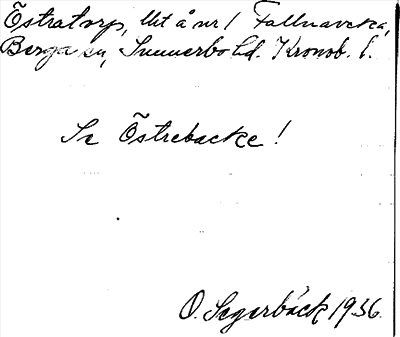 Östratorp, litt å nr 1 Fallnaveka,
Berga sn, Sunnerbo hd. Kronob. l.
Se Östrebacke!
O. Segerbäck 1936.